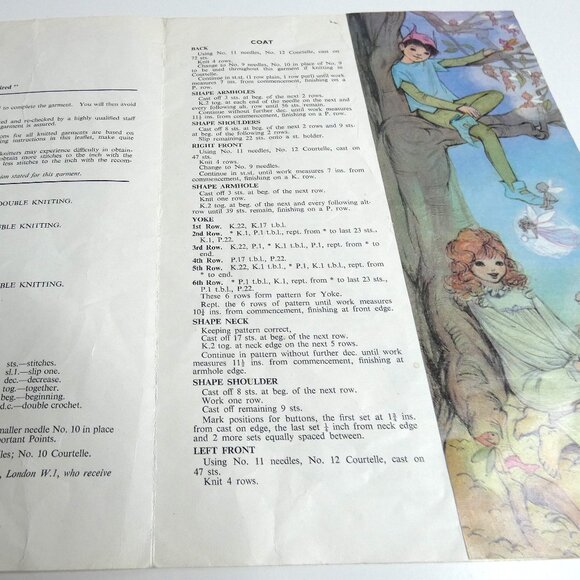 ired "
to complete the garment. You will then avoid
ed and re-checked by a highly qualified staff
garment is assured.
ons for all knitted garments are based on
ing instructions in this leaflet, make quite
nitters may experience difficulty in obtain-
obtain more stitches to the inch with the
loss stitches to the inch with the recom-
ion stated for this garment.
DOUBLE KNITTING.
UBLE KNITTING.
UBLE KNITTING.
sts.—stitches.
sl.1—slip one.
dec.—decrease.
tog.—together.
beg.—beginning.
d.c.—double crochet.
maller needle No. 10 in place
portant Points.
les; No. 10 Courtelle.
, London W.1, who receive
COAT
BACK
Using No. 11 needles, No. 12 Courtelle, cast on
72 sts.
Knit 4 rows.
Change to No. 9 needles, No. 10 in place of No. 9
to be used throughout this garment if knitting in
Courtelle.
Continue in st.st. (1 row plain, 1 row purl) until work
measures 7 ins. from commencement, finishing on a
P. row.
SHAPE ARMHOLES
Cast off 3 sts. at beg. of the next 2 rows.
K.2 tog. at each end of the needle on the next and
every following alt. row until 56 sts. remain.
Continue without further dec. until work measures
11½ ins. from commencement, finishing on a P. row.
SHAPE SHOULDERS
Cast off 8 sts. at beg. of the next 2 rows and 9 sts.
at beg. of the following 2 rows.
Slip remaining 22 sts. onto a st. holder.
RIGHT FRONT
Using No. 11 needles, No. 12 Courtelle, cast on
47 sts.
Knit 4 rows.
Change to No. 9 needles.
Continue in st.st. until work measures 7 ins. from
commencement, finishing on a K. row.
SHAPE ARMHOLE
Cast off 3 sts. at beg. of the next row.
Knit one row.
K.2 tog. at beg. of the next and every following alt.
row until 39 sts. remain, finishing on a P. row.
YOKE
1st Row. K.22, K.17 t.b.l.
2nd Row. * K.1, P.1 t.b.l., rept. from * to last 23 sts.,
K.1, P.22.
3rd Row. K.22, P.1, * K.1 t.b.l., P.1, rept. from * to
end.
4th Row. P.17 t.b.l., P.22.
5th Row. K.22, K.1 t.b.l., * P.1, K.1 t.b.l., rept. from *
to end.
6th Row. * P.1 t.b.l., K.1, rept. from * to last 23 sts.,
P.1 t.b.l., P.22.
These 6 rows form pattern for Yoke.
Rept. the 6 rows of pattern until work measures
10¾ ins. from commencement, finishing at front edge.
SHAPE NECK
Keeping pattern correct,
Cast off 17 sts. at beg. of next row.
K.2 tog. at neck edge on the next 5 rows.
Continue in pattern without further dec. until work
measures 11½ ins. from commencement, finishing at
armhole edge.
SHAPE SHOULDER
Cast off 8 sts. at beg. of the next row.
Work one row.
Cast off remaining 9 sts.
Mark positions for buttons, the first set at 1¾ ins.
from cast on edge, the last set ½ inch from neck edge
and 2 more sets equally spaced between.
LEFT FRONT
Using No. 11 needles, No. 12 Courtelle, cast on
47 sts.
Knit 4 rows.